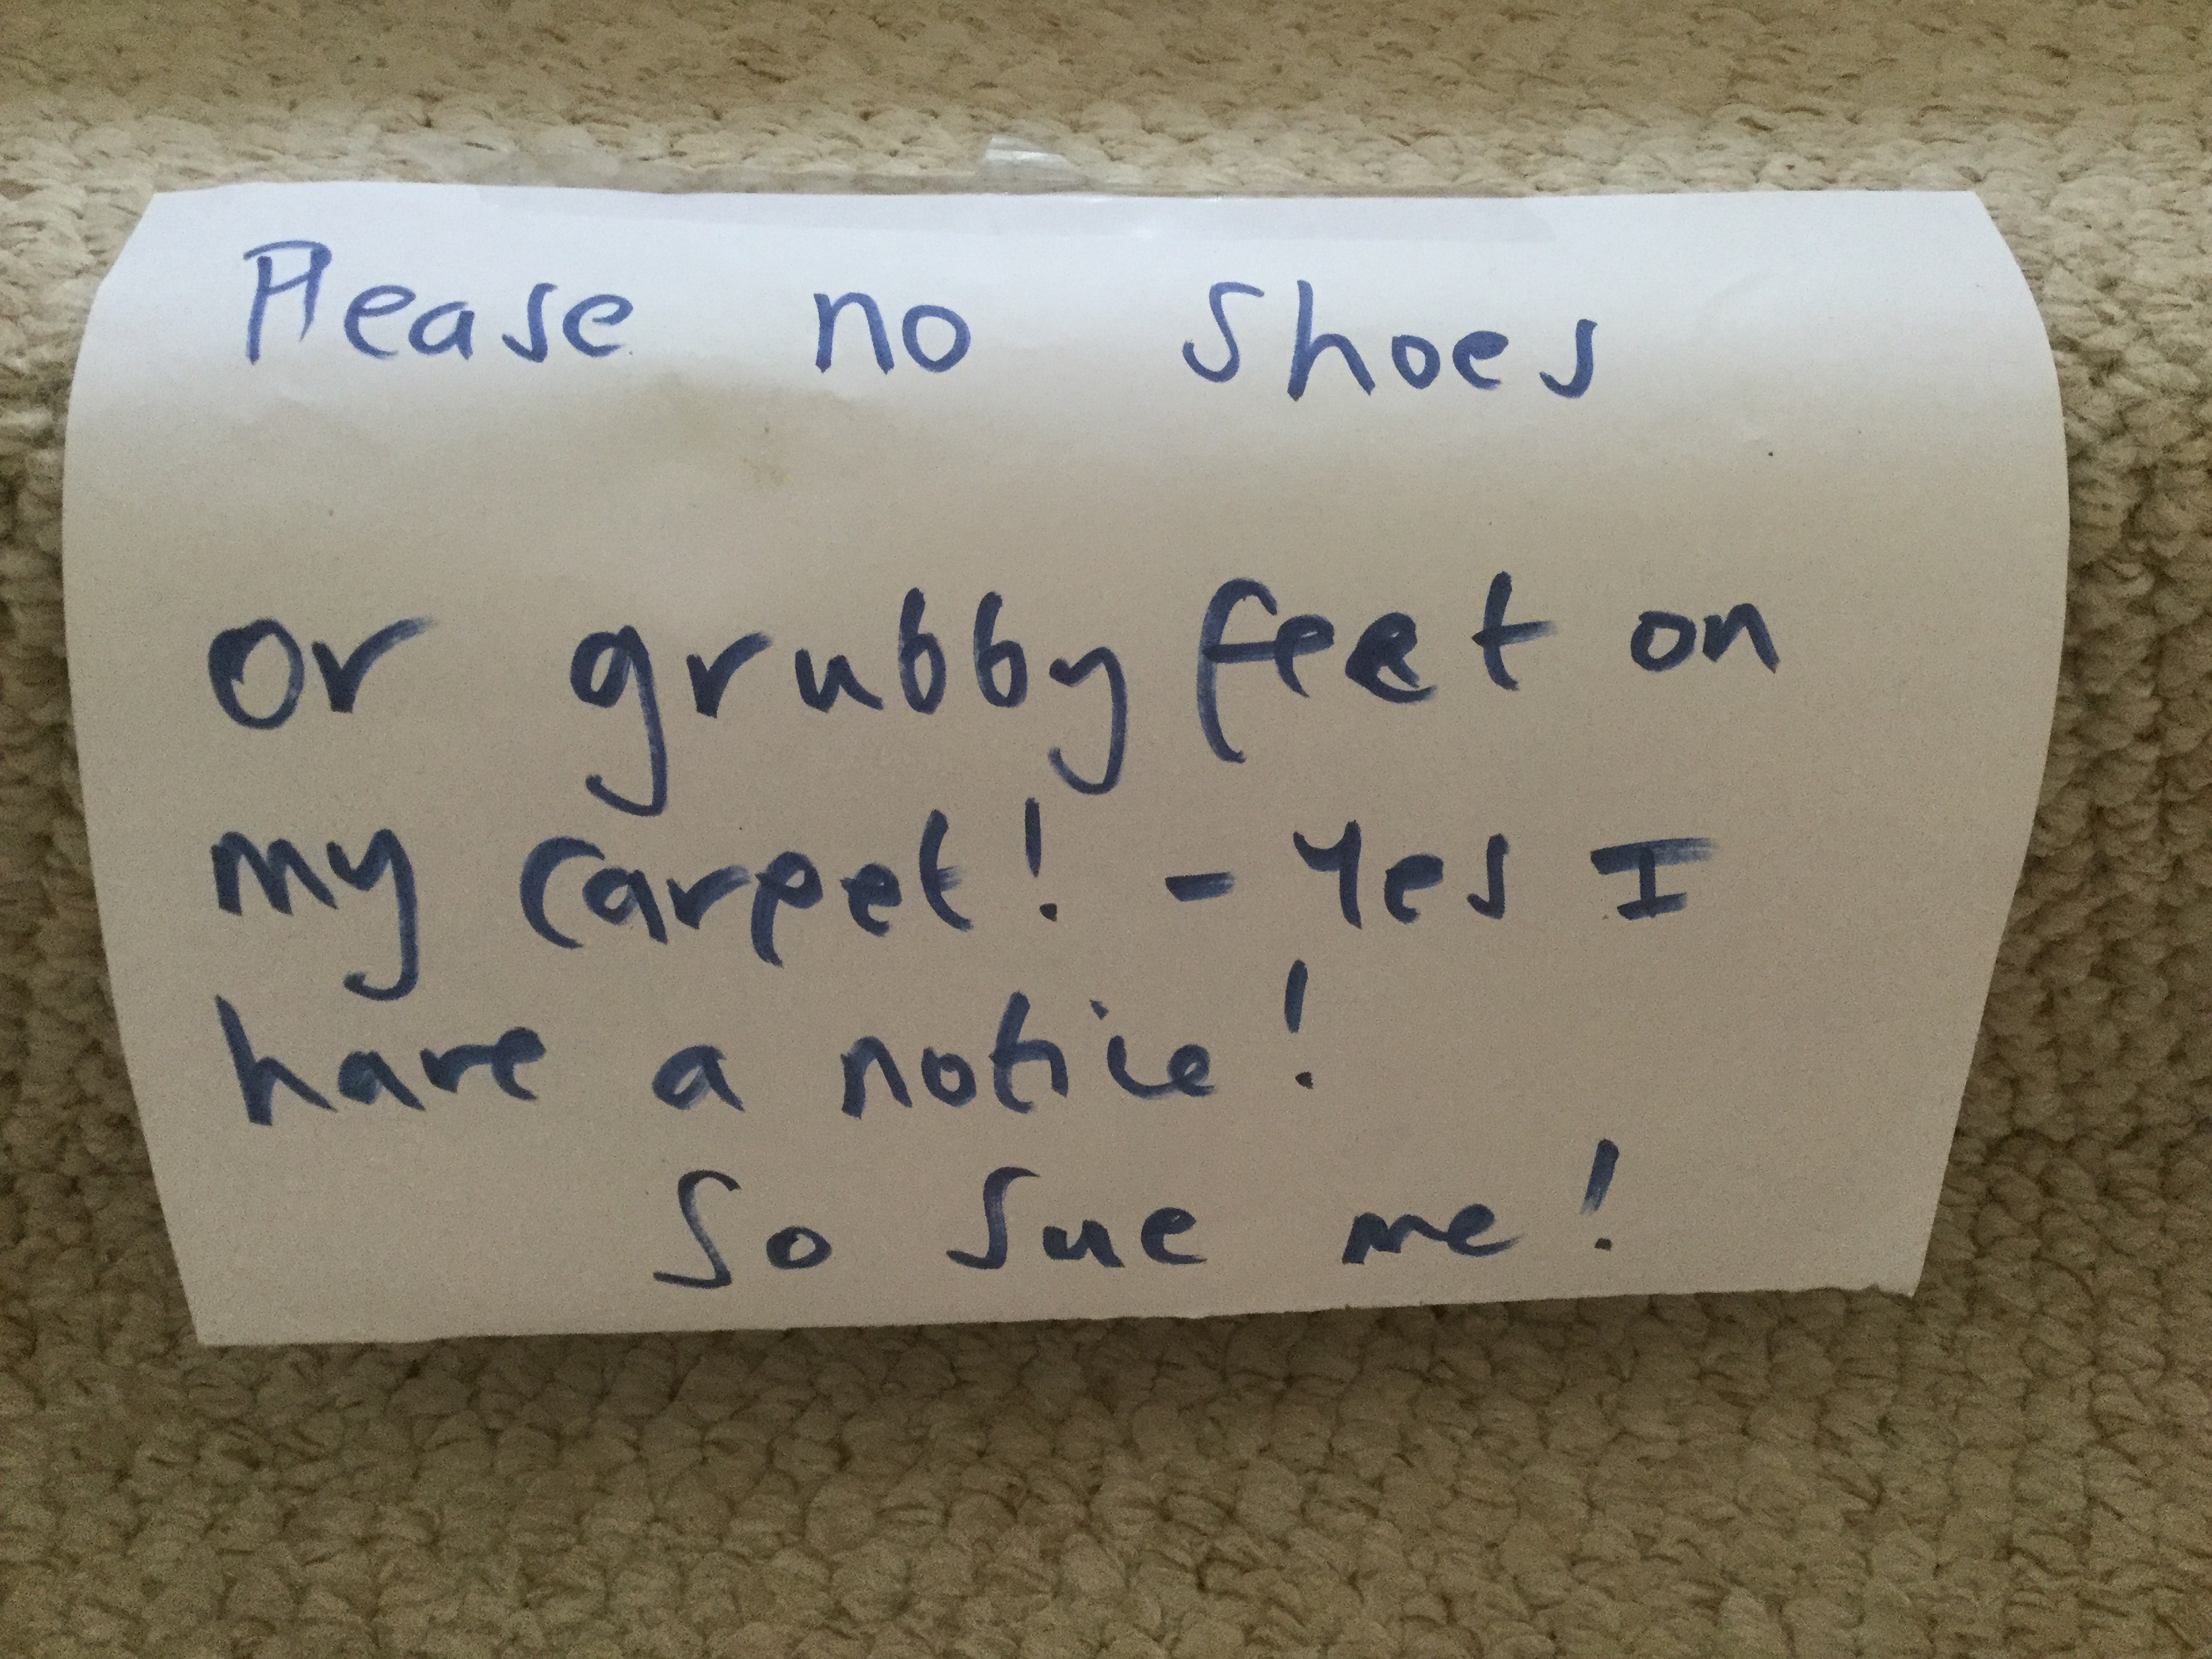 Please no shoes
or grubby feet on
my carpet! - Yes I
have a notice!
So sue me!